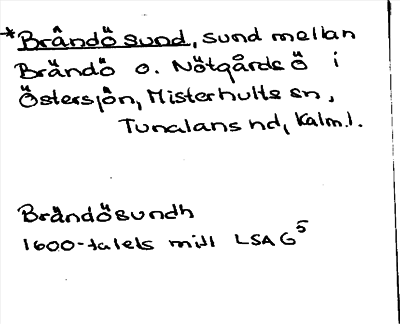 *Brändö sund, sund mellan
Brändö o. Nötgårds ö i
Östersjön, Misterhults sn,
Tunaläns hd, Kalm.l.
Brändösundh
1600-talets mitt LSA G5